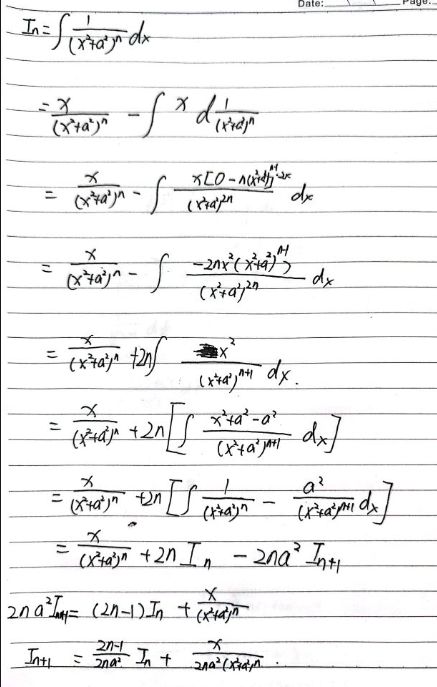 Date: Page:
Iₙ = ∫ 1/(x²+a²)ⁿ dx
= x/(x²+a²)ⁿ - ∫ x d 1/(x²+a²)ⁿ
= x/(x²+a²)ⁿ - ∫ x[0 - n(x²+a²)ⁿ⁻¹]·2x/(x²+a²)²ⁿ dx
= x/(x²+a²)ⁿ - ∫ -2nx²(x²+a²)ⁿ⁻¹)/(x²+a²)²ⁿ dx
= x/(x²+a²)ⁿ + 2n ∫ x²/(x²+a²)ⁿ⁺¹ dx.
= x/(x²+a²)ⁿ + 2n [∫ x²+a²-a²/(x²+a²)ⁿ⁺¹ dx]
= x/(x²+a²)ⁿ + 2n [∫ 1/(x²+a²)ⁿ - a²/(x²+a²)ⁿ⁺¹ dx]
= x/(x²+a²)ⁿ + 2n Iₙ - 2na² Iₙ₊₁
2na² Iₙ₊₁ = (2n-1) Iₙ + x/(x²+a²)ⁿ
Iₙ₊₁ = 2n-1/2na² Iₙ + x/2na²(x²+a²)ⁿ .